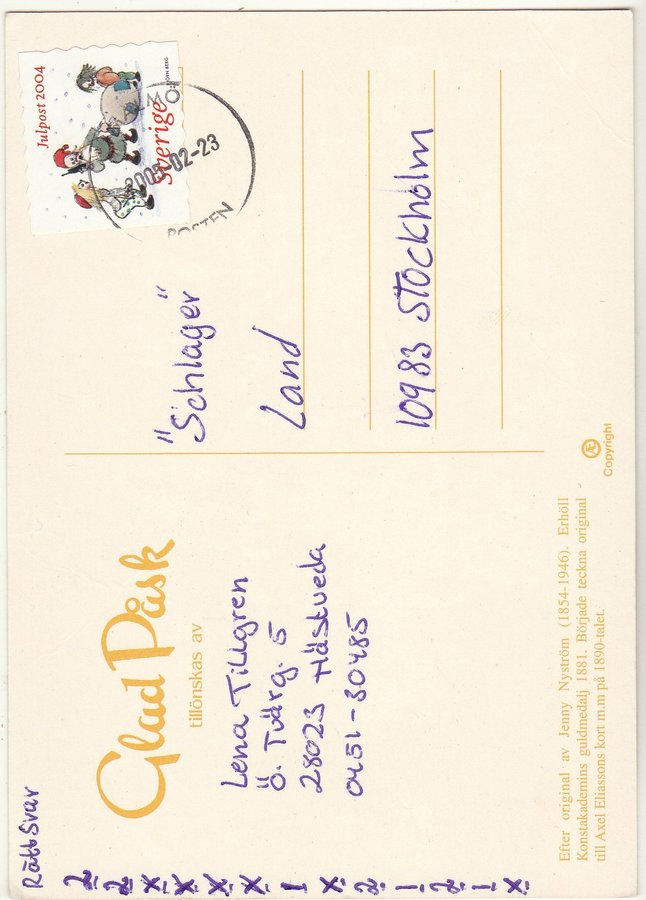 Rätt svar
2
2
X
X
X
X
1
X
2
1
2
1
X
Glad Påsk
tillönskas av
Lena Tillgren
Ö. Tvärg. 5
28023 Hästveda
0451-30485
Efter original av Jenny Nyström (1854-1946). Erhöll
Konstakademins guldmedalj 1881. Började teckna original
till Axel Eliassons kort m.m på 1890-talet.
Julpost 2004
Sverige
2005-02-23
POSTEN
"Schlager"
Land
10983 STOCKHOLM
Æ
Copyright